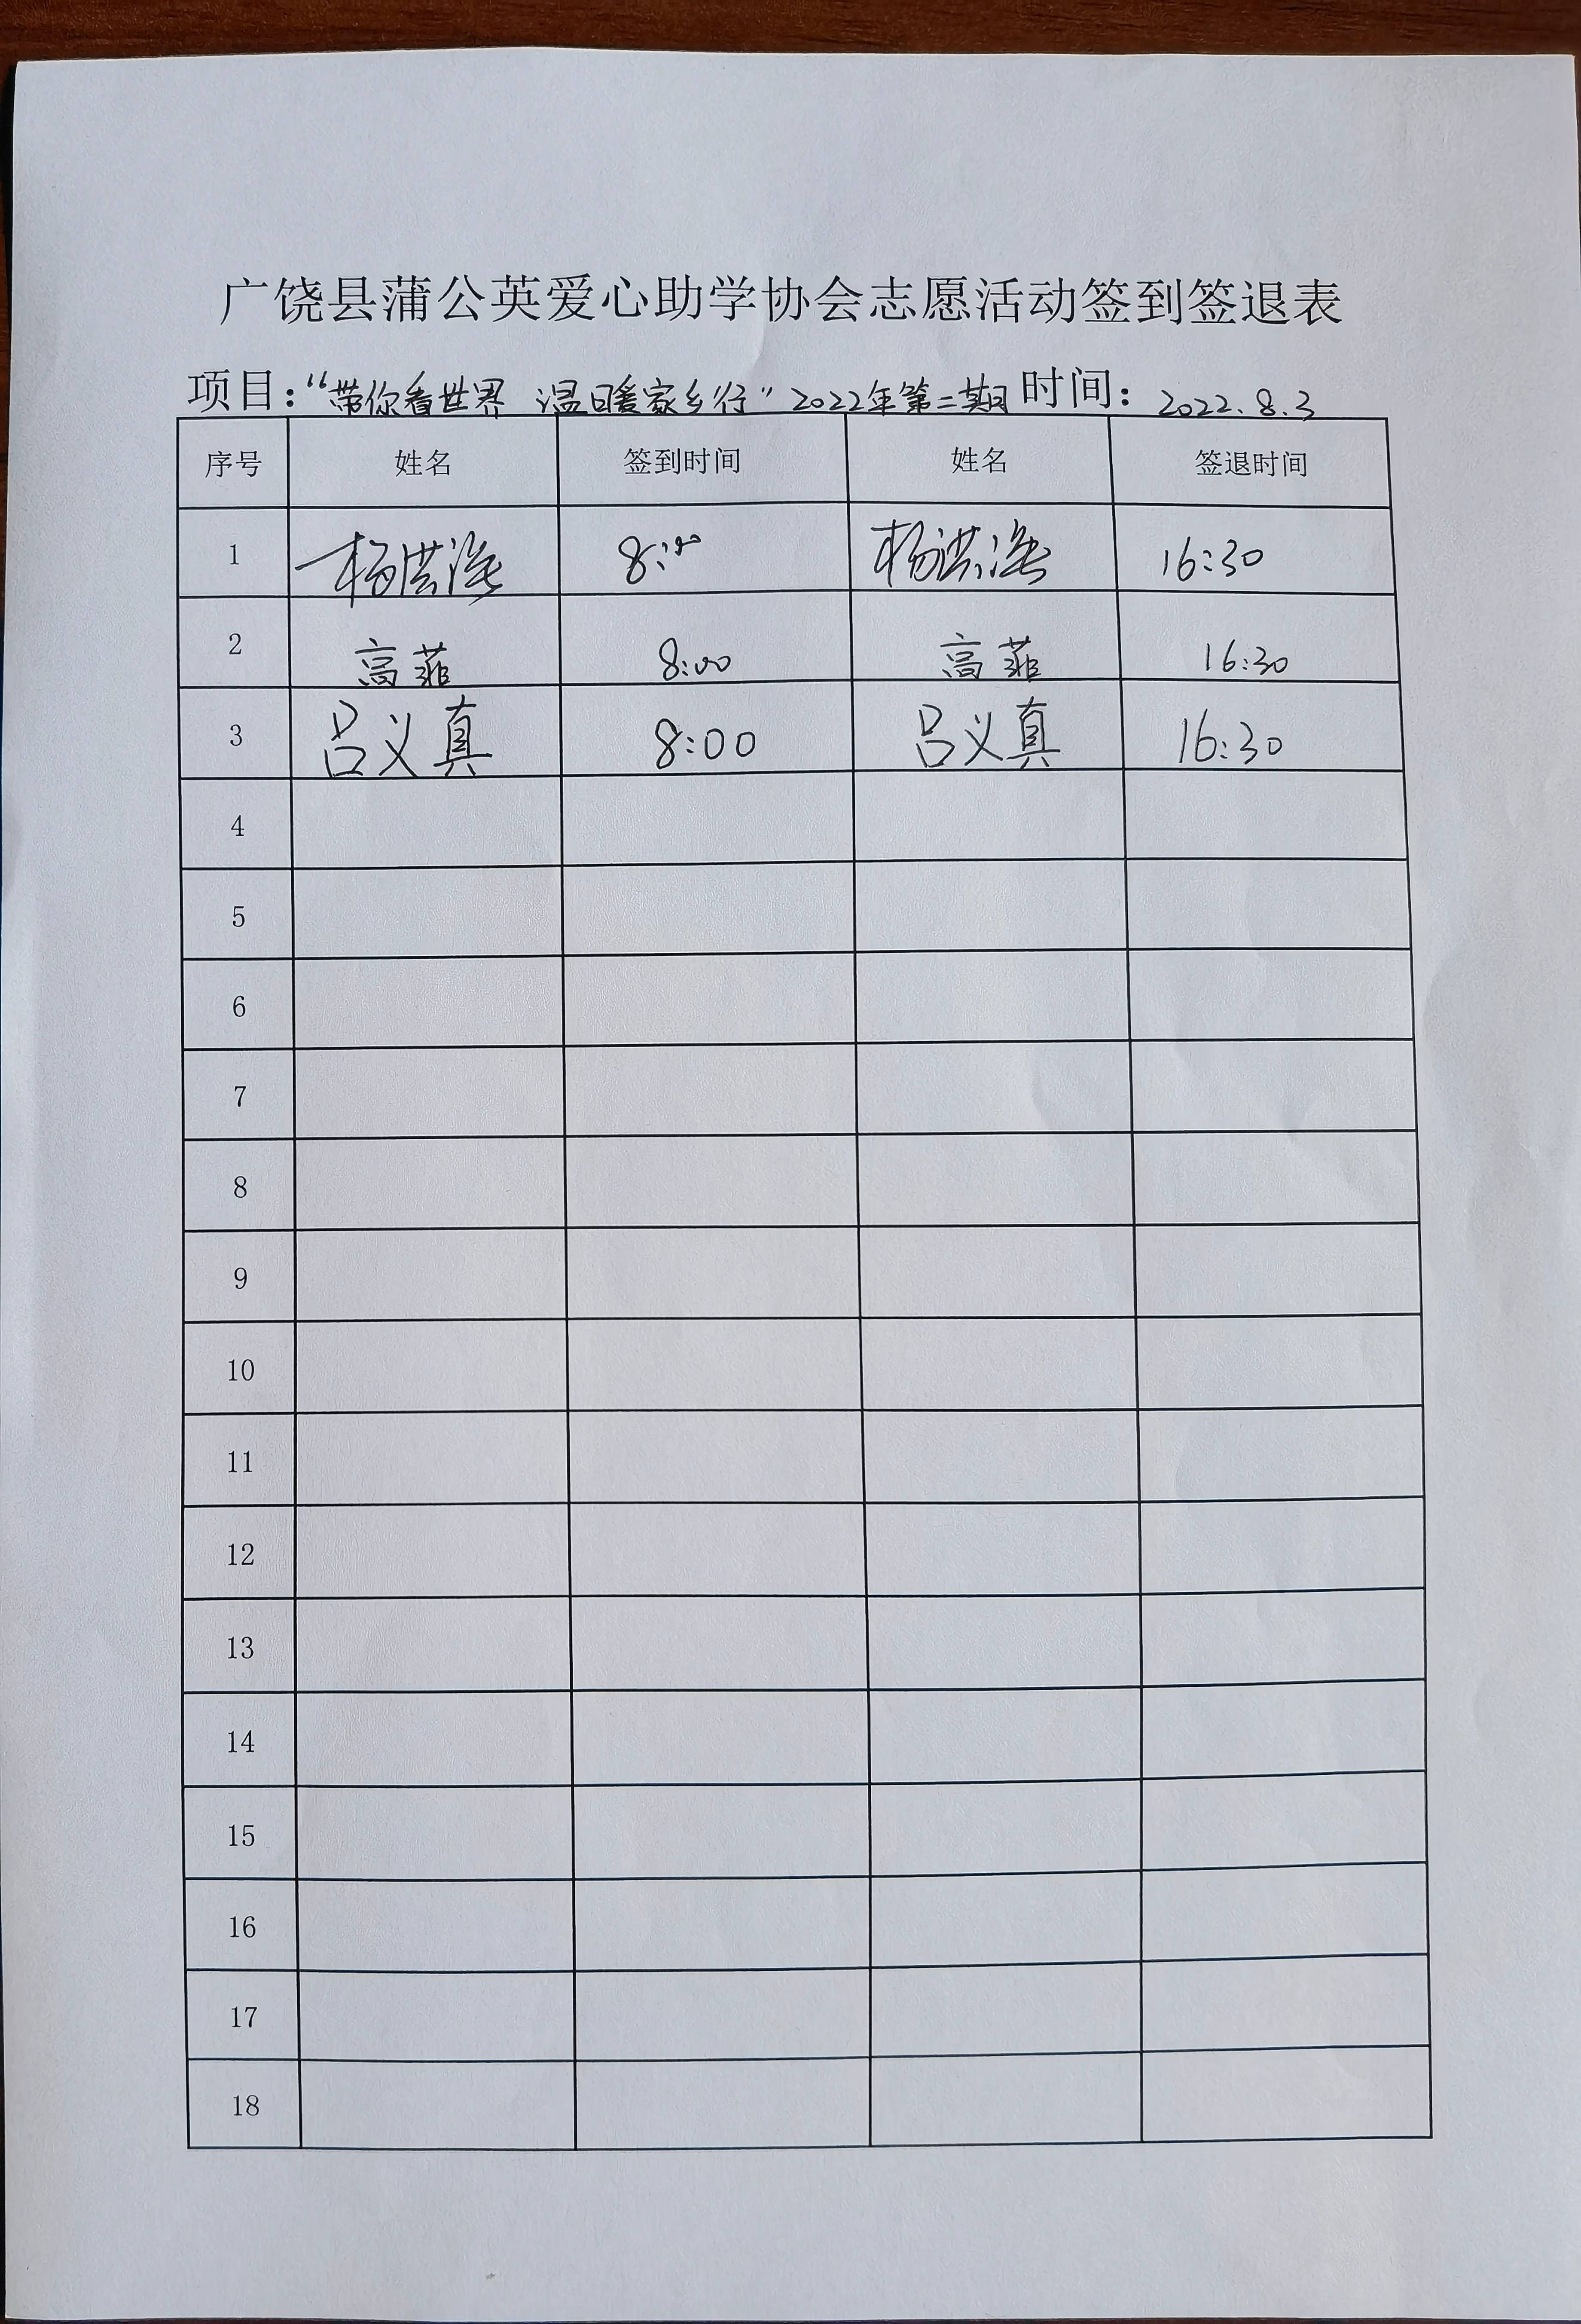 广饶县蒲公英爱心助学协会志愿活动签到签退表
项目：“带你看世界 温暖家乡行”2022年第二期 时间：2022.8.3
序号 姓名 签到时间 姓名 签退时间
1 杨洪海 8:00 杨洪海 16:30
2 高菲 8:00 高菲 16:30
3 吕义真 8:00 吕义真 16:30
4
5
6
7
8
9
10
11
12
13
14
15
16
17
18